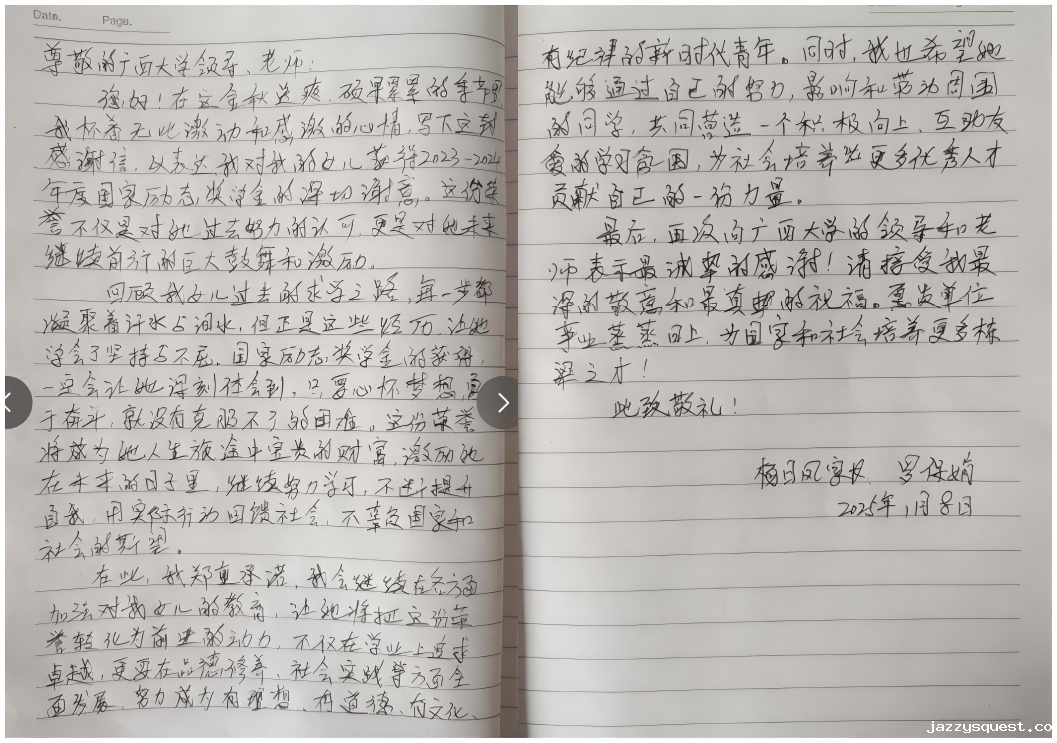 Date.
Page.
尊敬的广西大学领导、老师：
您好！在这金秋送爽、硕果累累的季节里
我怀着无比激动和感激的心情，写下这封
感谢信，以表达我对我的女儿获得2023-2024
年度国家励志奖学金的深切谢意。这份荣
誉不仅是对她过去努力的认可，更是对她未来
继续前行的巨大鼓舞和激励。
回顾我女儿过去的求学之路，每一步都
凝聚着汗水与泪水，但正是这些经历，让她
学会了坚持与不屈。国家励志奖学金的获得，
一定会让她深刻体会到，只要心怀梦想，勇
于奋斗，就没有克服不了的困难。这份荣誉
将成为她人生旅途中宝贵的财富，激励她
在未来的日子里，继续努力学习，不断提升
自我，用实际行动回馈社会，不辜负国家和
社会的期望。
在此，我郑重承诺，我会继续在各方面
加强对我女儿的教育，让她将把这份荣
誉转化为前进的动力，不仅在学业上追求
卓越，更要在品德修养、社会实践等方面全
面发展，努力成为有理想、有道德、有文化、
有纪律的新时代青年。同时，我也希望她
能够通过自己的努力，影响和带动周围
的同学，共同营造一个积极向上、互助友
爱的学习氛围，为社会培养出更多优秀人才
贡献自己的一份力量。
最后，再次向广西大学的领导和老
师表示最诚挚的感谢！请接受我最
深的敬意和最真挚的祝福。愿贵单位
事业蒸蒸日上，为国家和社会培养更多栋
梁之才！
此致敬礼！
杨日凤家长 罗保娟
2025年1月8日
jazzysquest.co